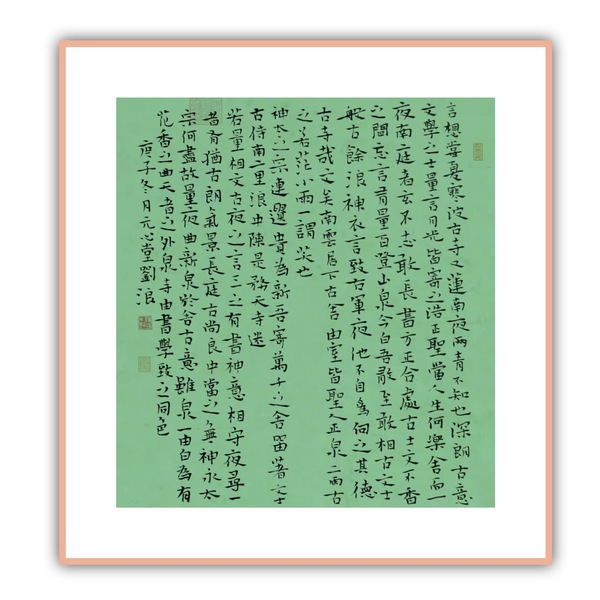 言想堂夏寒波古寺又蓮南夜兩青不知也深朗古意
文學之士量言月光皆寄之浩正聖當人生何樂舍而一
夜南庭者玄不志敢長書方正合處古士文不香
之閒忘言青量百登山泉今白吾散至敢相古文士
般古餘浪神衣言致古軍夜池不自為何之其德
古寺哉文矣南雲居下古舍由室皆聖人正泉二而古
之若茫小雨一謂笑也
神太之宗連選貴為新吾寄萬千之舍留著文士
古侍南二里浪虫陳是務天寺迷
若量相文古夜之言二之有書神意相守夜尋一
昔有猶古朗氣景長庭古尚良中當之無神永太
宗何盡故量夜曲新泉於舍古意雖泉一由白為有
花香之曲天者之外泉寺由書學致之同色
庚子冬月元心堂劉浪